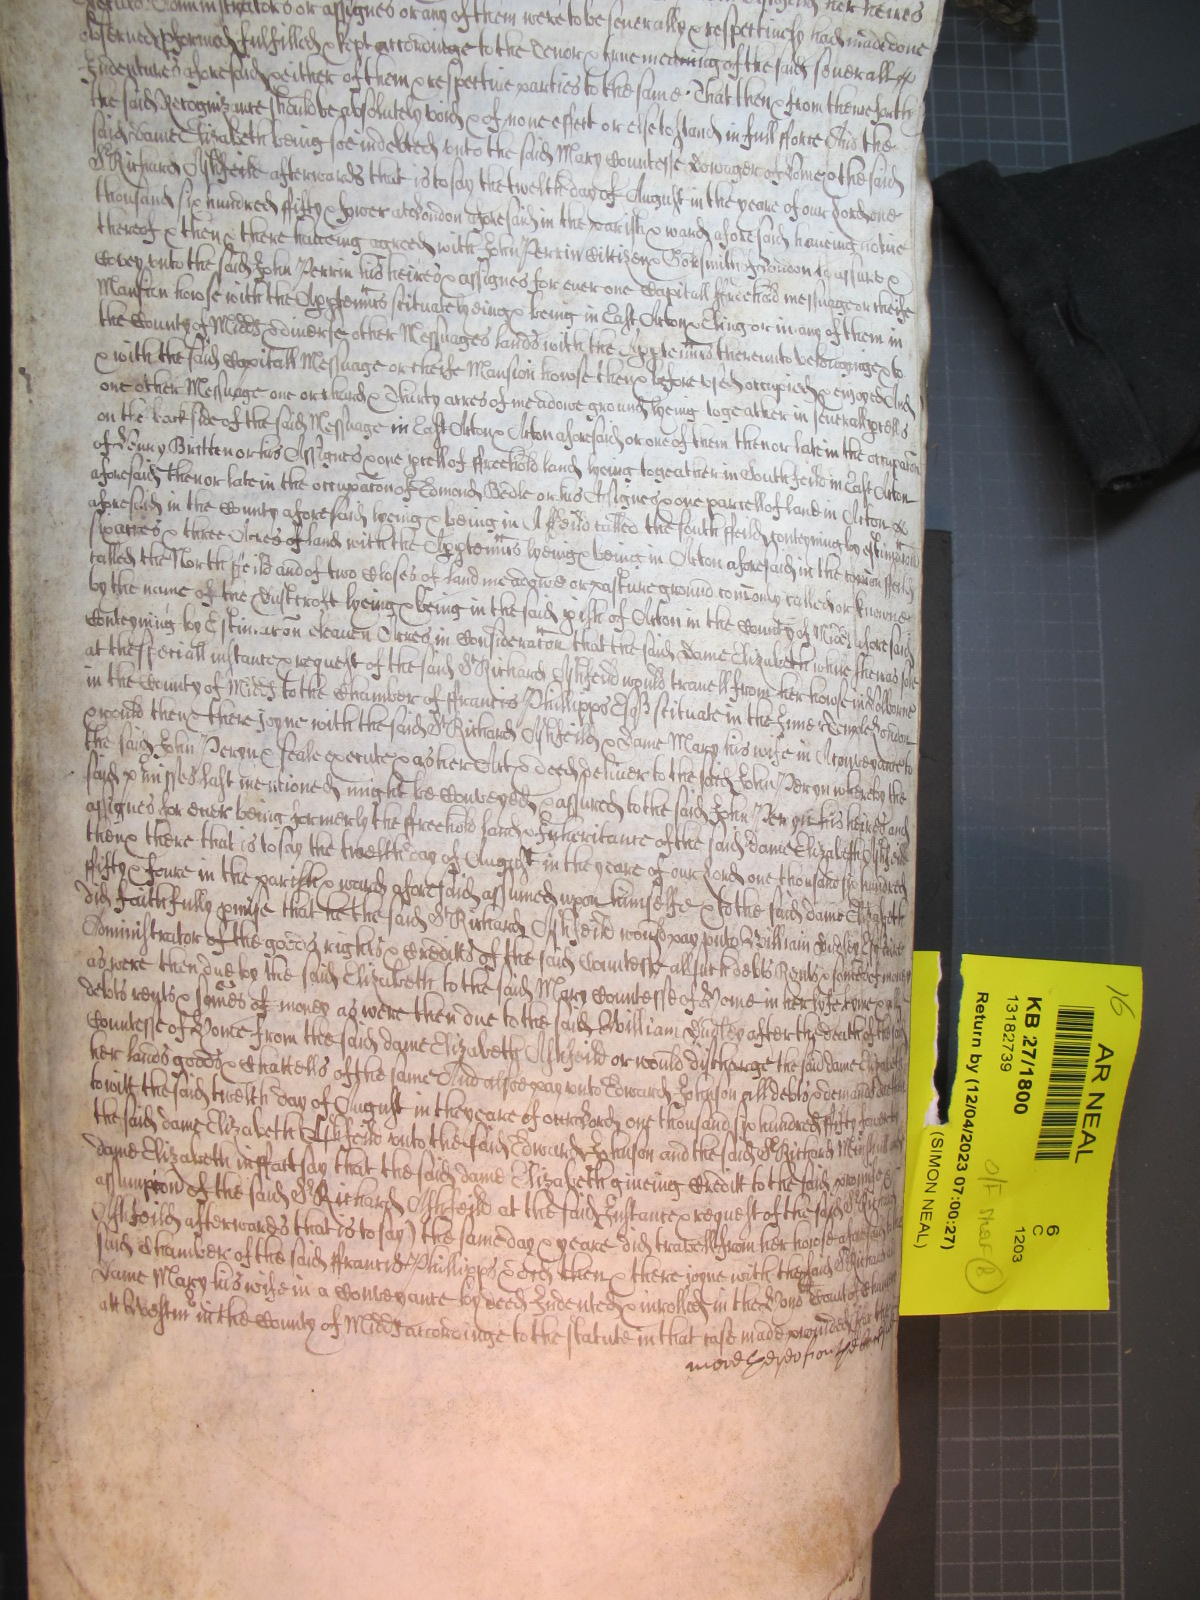 Administrators or assignes or any of them were to be severally & respectively had made done
observed pformed fulfilled & kept accordinge to the Tenor & true meaning of the said severall
Indentures aforesaid & either of them & respective parties to the same That then & from thenceforth
the said Recognizance should be absolutely void & of none effect or else to stand in full fforce And the
said dame Elizabeth being soe indebted unto the said Mary Countesse dowager of Rome & the said
Sr Richard Ashfeild afterwards that is to say the twelth day of August in the yeare of our Lord one
thousand six hundred ffifty & fower at London aforesaid in the parish & ward aforesaid haveing notice
thereof & then & there haveing agreed with John Perrin Cittizen & Goldsmith of London to assure &
Covey unto the said John Perrin his heires & assignes for ever one Capitall ffreehold messuage or cheife
Mansion howse with the Apptennts scituate lyeing & being in East Acton & Eling or in any of them in
the County of Midd & diverse other Messuages lands with the Apptennts thereunto belonginge & to
& with the said Capitall Messuage or cheife Mansion howse then & before used occupied & enjoyed And
one other Messuage one orchard & thirty acres of meadowe ground lyeing togeather in severall pcells
on the back side of the said Messuage in East Acton & Acton aforesaid or one of them then or late in the occupacon
of Henry Britten or his Assignes & one pcell of ffreehold land lyeing togeather in South feild in East Acton
aforesaid then or late in the occupacon of Edmond Bedle or his Assignes & one parcell of land in Acton
aforesaid in the County aforesaid lyeing & being in A ffeild called the South ffeild conteyning by estimacon
six acres & three Acres of land with the Apptennts lyeing & being in Acton aforesaid in the comon ffeild
called the North ffeild and of two Closes of land meadowe or pasture ground comonly called or knowne
by the name of the lyeing & being in the said pish of Acton in the County of Midd aforesaid
Conteyning by Estimacon eleaven Acres in Consideracon that the said Dame Elizabeth while shee was sole
at the speciall instance & request of the said Sr Richard Ashfeild would travell from her howse in Holborne
in the County of Midd to the Chamber of ffrancis Phillipps Esqr scituate in the Inner Temple London
& would then & there joyne with the said Sr Richard Ashfeild & Dame Mary his wife in A Conveyance to
the said John Peryn & seale execute & as her Act & deed deliver to the said John Peryn whereby the
said pmisses last mencioned might be Conveyed & assured to the said John Peryn his heires and
assignes for ever being formerly the ffreehold land & Inheritance of the said dame Elizabeth Ashfeild
then & there that is to say the twelth day of August in the yeare of our Lord one thousand six hundred
ffifty & foure in the parish & ward aforesaid assumed upon himselfe & to the said dame Elizabeth
did faithfully pmise that he the said Sr Richard Ashfeild would pay unto William Dudley Esquire
Administrator of the goods rights & Creditts of the said Countesse all such debts Rents & somes of money
as were then due by the said Elizabeth to the said Mary Countesse of Rome in her lyfe tyme & all
debts rents & somes of money as were then due to the said William Dudley after the death of the said
Countesse of Rome from the said dame Elizabeth Ashfeild or would discharge the said dame Elizabeth
her lands goods & Chattells of the same And alsoe pay unto Edward Johnson all debts & demands
to witt the said twelth day of August in the yeare of our Lord one thousand six hundred ffifty foure
the said dame Elizabeth Ashfeild unto the said Edward Johnson and the said Sr Richard
dame Elizabeth in ffact say that the said dame Elizabeth giveing Creditt to the said promise &
assumpcion of the said Sr Richard Ashfeild at the said Instance & request of the said Sr Richard
Ashfeild afterwards that is to say) the same day & yeare did travell from her howse aforesaid
said Chamber of the said ffrancis Phillipps & did then & there joyne with the said Sr Richard
Dame Mary his wife in a Conveyance by deed Indented & inrolled in the Court of
att Westmr in the County of Midd accordinge to the statute in that case made &
more
16
AR NEAL
KB 27/1800
13182739
Return by (12/04/2023 07:00:27)
(SIMON NEAL)
6
C
1203
8